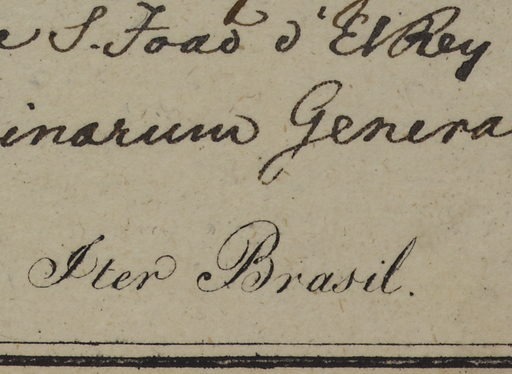 e S. Joaõ d'El Rey
inarum Genera
Iter Brasil.